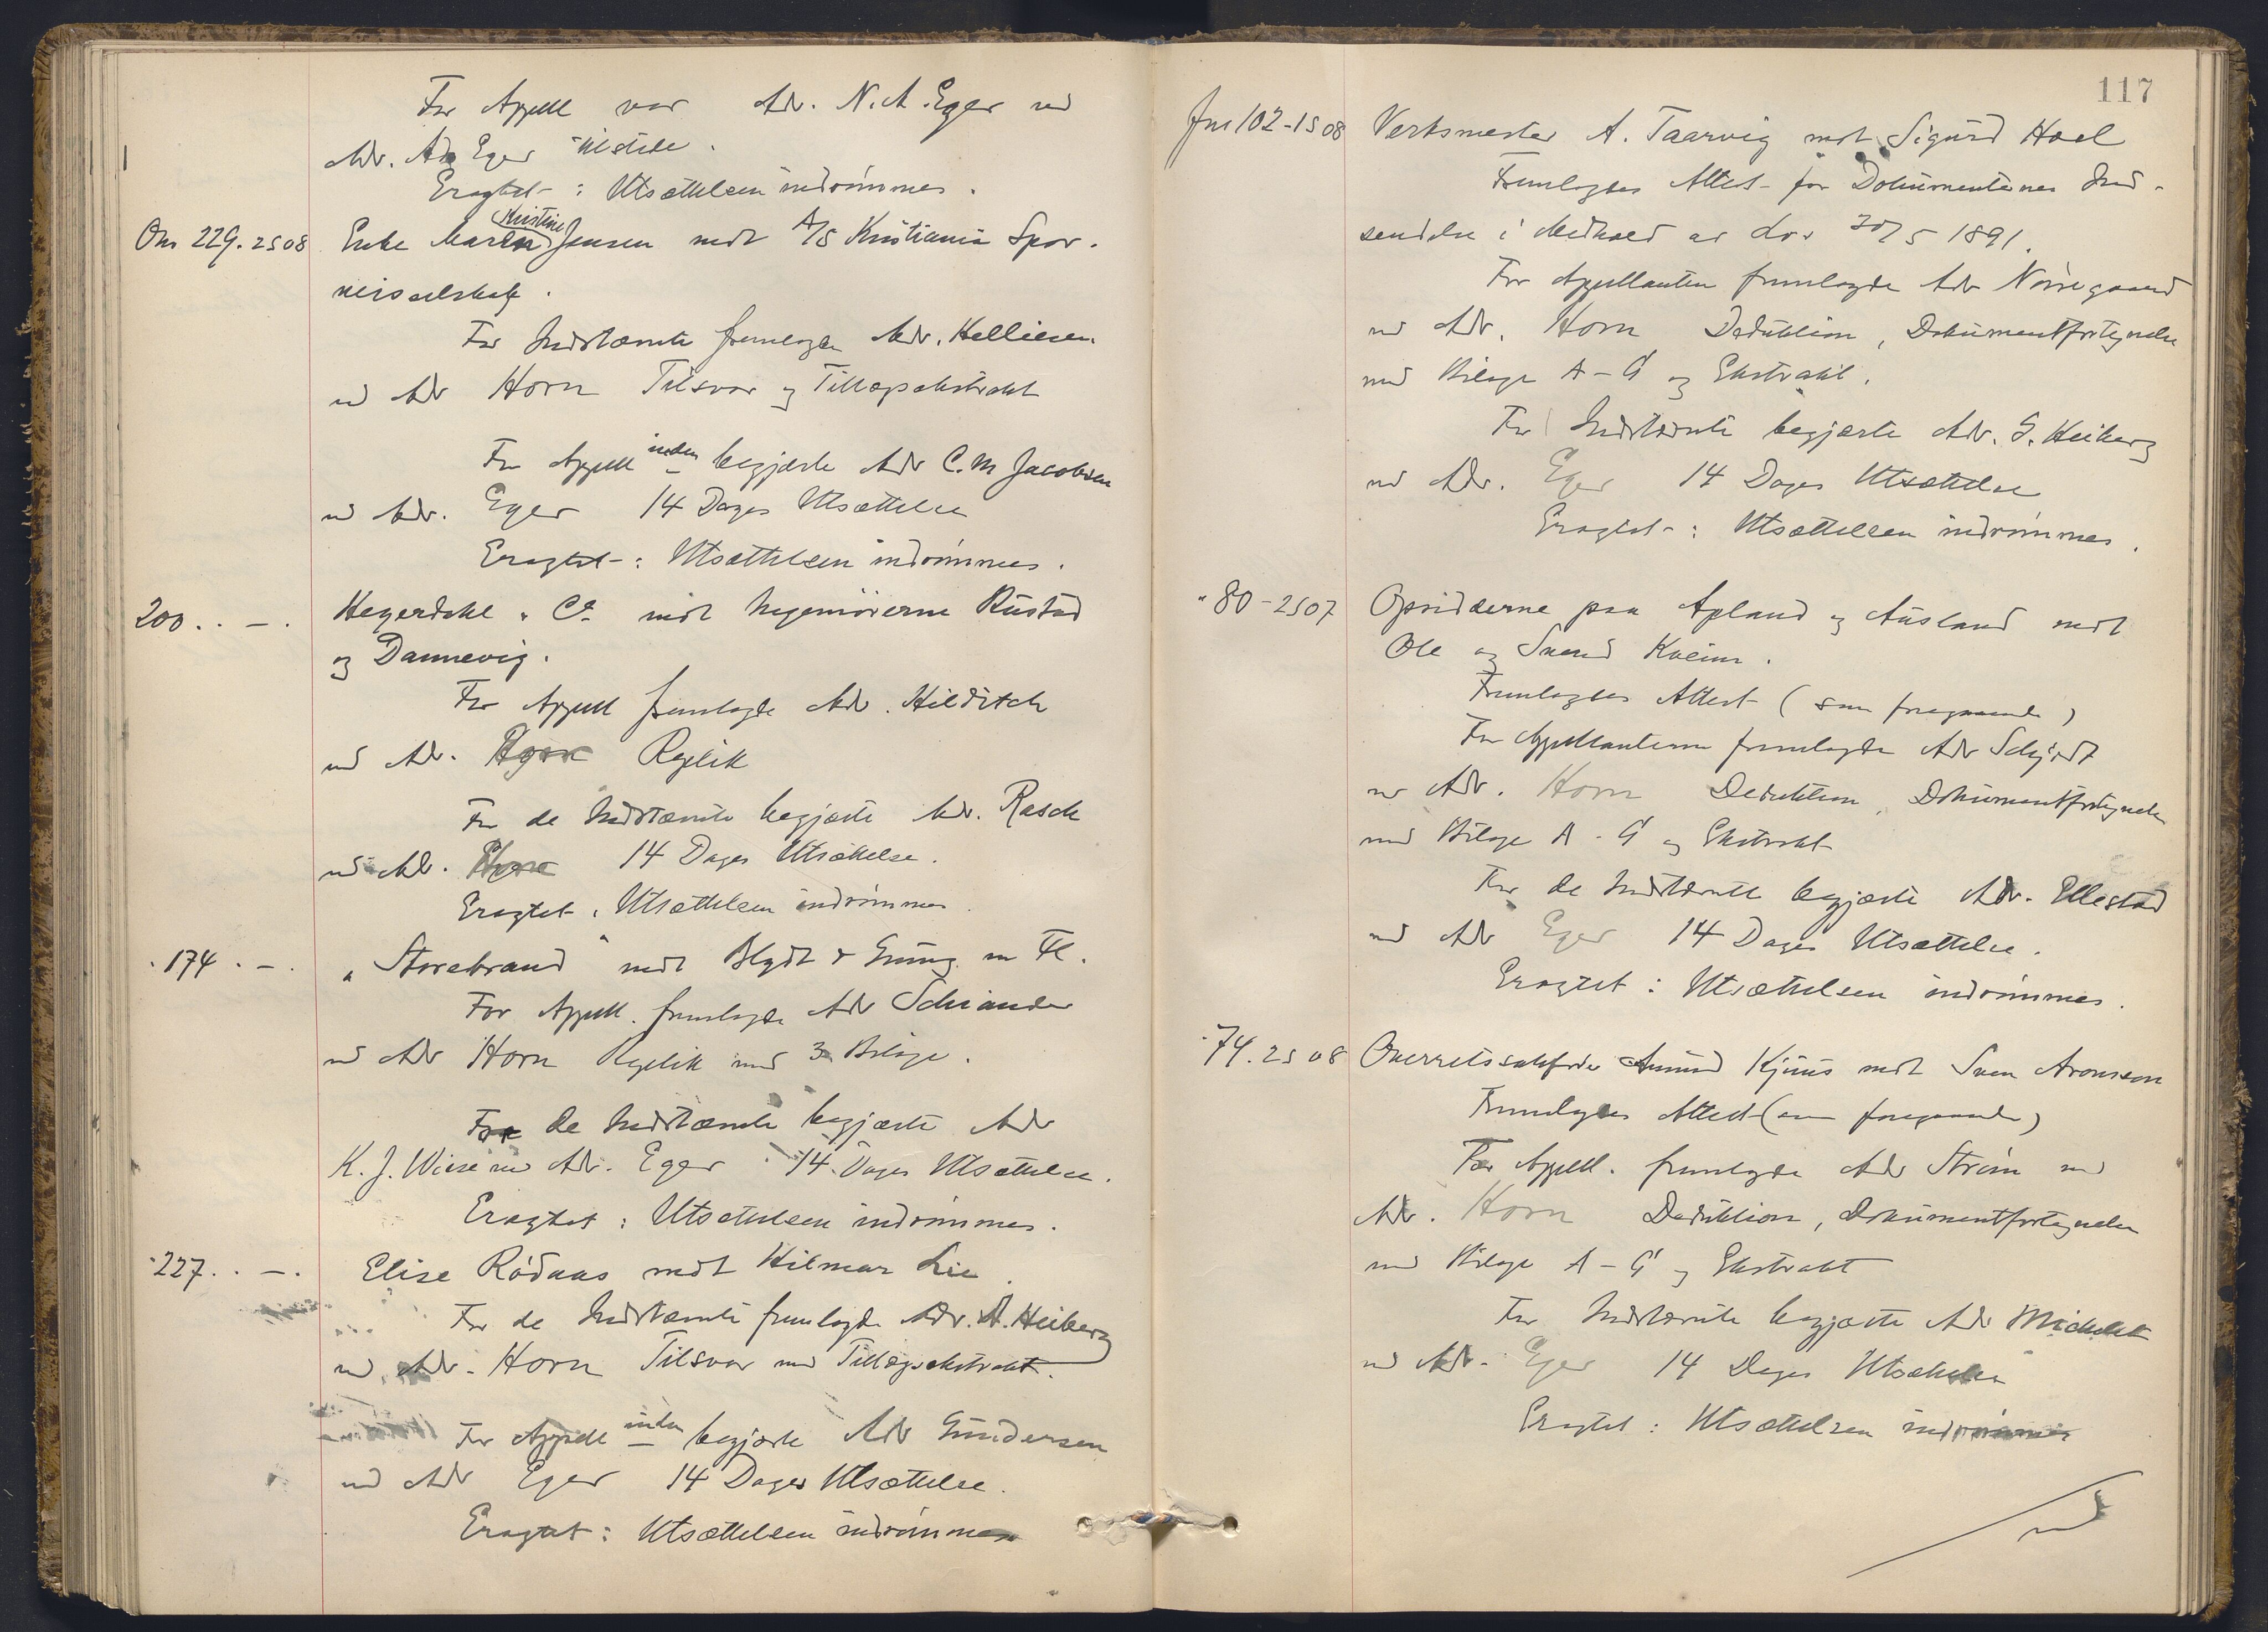 For Appell var Adv. N. A. Eger ved
Adv. Eger tilstede.
Eragtet: Utsættelsen indrømmes.
Om 229. 2s 08 Enke Maren Kristine Jensen mot A/S Kristiania Spor-
veisselskab.
For Indstævnte fremlagde Adv. Helliesen
ved Adv Horn Tilsvar og Tillægsekstrakt
For Appell inden begjærte Adv C. M Jacobsen
ved Adv. Eger 14 Dages Utsættelse
Eragtet: Utsættelsen indrømmes.
200 . . — . Hegerdahl & Co. mot Ingeniørerne Rustad
og Dannevig.
For Appell fremlagde Adv. Hilditch
ved Adv. Replik
For de Indstævnte begjærte Adv. Rasch
ved Adv. 14 Dages Utsættelse.
Eragtet: Utsættelsen indrømmes
. 174 . — . „Storebrand" mot Blydt & Grung m Fl.
For Appell. fremlagde Adv Schiander
ved Adv Horn Replik med 3 Bilage.
For de Indstævnte begjærte Adv
K. J. Wiese ved Adv. Eger 14 Dages Utsættelse.
Eragtet: Utsættelsen indrømmes.
" 227 . . — . Elise Rødaas mot Hilmar Lie.
For de Indstævnte fremlagde Adv. A. Heiberg
ved Adv. Horn Tilsvar med Tillægsekstrakt.
For Appell inden begjærte Adv Gundersen
ved Adv Eger 14 Dages Utsættelse.
Eragtet: Utsættelsen indrømmes
117
102-1s 08 Verksmester A. Taarvig mot Sigurd Hoel
Fremlagdes Attest for Dokumenternes Ind-
sendelse i Medhold av Lov 30/5 1891.
For Appellanten fremlagde Adv Nørregaard
ved Adv. Horn Deduktion, Dokumentfortegnelse
med Bilage A-G og Ekstrakt.
For Indstævnte begjærte Adv. G. Heiberg
ved Adv. Eger 14 Dages Utsættelse
Eragtet: Utsættelsen indrømmes.
" 80-2s 07 Opsidderne paa Apland og Ausland mot
Ole og Svend Kveim.
Fremlagdes Attest (som foregaaende)
For Appellanterne fremlagde Adv Schjødt
ved Adv. Horn Deduktion, Dokumentfortegnelse
med Bilage A-G og Ekstrakt
For de Indstævnte begjærte Adv. Ellestad
ved Adv Eger 14 Dages Utsættelse.
Eragtet: Utsættelsen indrømmes.
" 74. 2s 08 Overretssakfører Amund Kjuus mot Sven Aronsson
Fremlagdes Attest (som foregaaende)
For Appell. fremlagde Adv Strøm ved
Adv. Horn Deduktion, Dokumentfortegnelse
med Bilage A-G og Ekstrakt
For Indstævnte begjærte Adv Michelet
ved Adv. Eger 14 Dages Utsættelse
Eragtet: Utsættelsen indrømmes